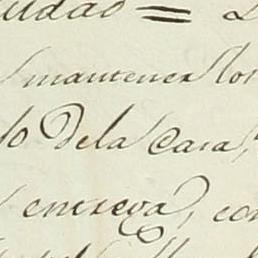 iudad =
mantener los
do de la Casa,
entrega, con